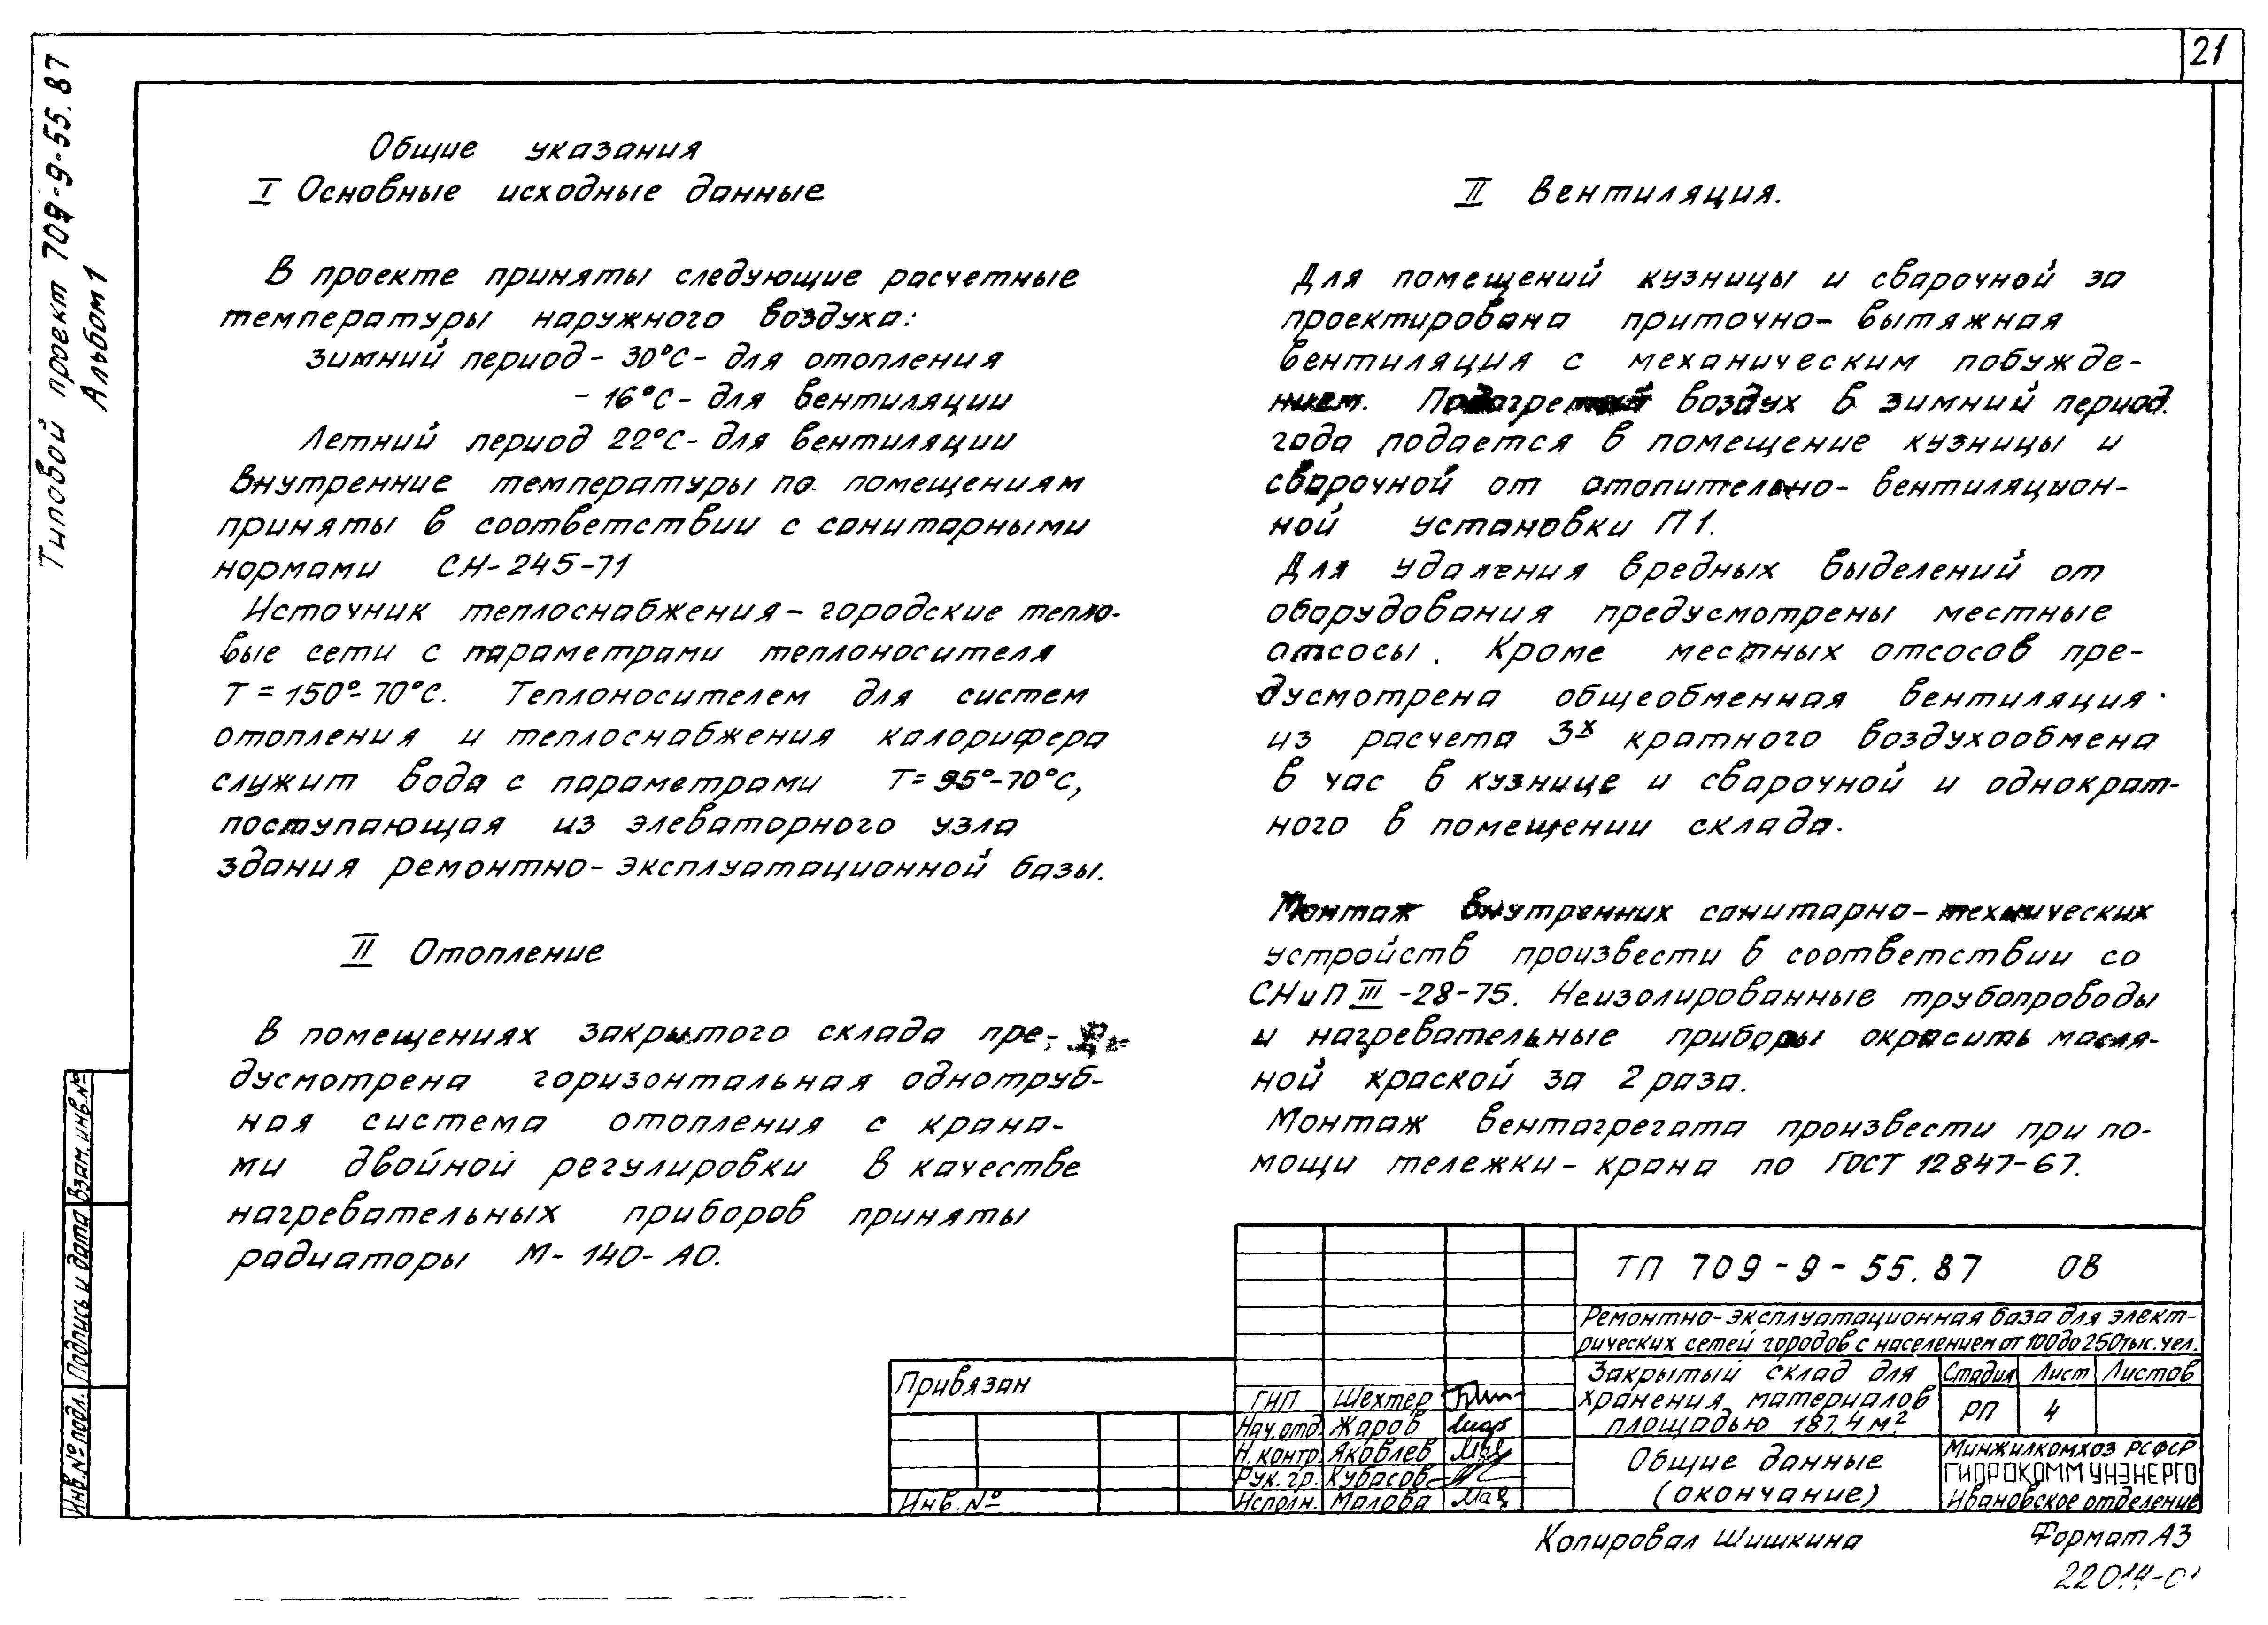 21
Типовой проект 709-9-55.87
Альбом 1
Общие указания
I Основные исходные данные
В проекте приняты следующие расчетные
температуры наружного воздуха:
зимний период - 30°С - для отопления
- 16°С - для вентиляции
Летний период 22°С - для вентиляции
Внутренние температуры по помещениям
приняты в соответствии с санитарными
нормами СН-245-71
Источник теплоснабжения - городские тепло-
вые сети с параметрами теплоносителя
Т = 150°-70°С. Теплоносителем для систем
отопления и теплоснабжения калорифера
служит вода с параметрами Т = 95°-70°С,
поступающая из элеваторного узла
здания ремонтно-эксплуатационной базы.
II Отопление
В помещениях закрытого склада пре-
дусмотрена горизонтальная однотруб-
ная система отопления с крана-
ми двойной регулировки В качестве
нагревательных приборов приняты
радиаторы М-140-АО.
II Вентиляция.
Для помещений кузницы и сварочной за
проектирована приточно-вытяжная
вентиляция с механическим побужде-
нием. Подогретый воздух в зимний период
года подается в помещение кузницы и
сварочной от отопительно-вентиляцион-
ной установки П1.
Для удаления вредных выделений от
оборудования предусмотрены местные
отсосы. Кроме местных отсосов пре-
дусмотрена общеобменная вентиляция
из расчета 3х кратного воздухообмена
в час в кузнице и сварочной и однократ-
ного в помещении склада.
Монтаж внутренних санитарно-технических
устройств произвести в соответствии со
СНиП III-28-75. Неизолированные трубопроводы
и нагревательные приборы окрасить масля-
ной краской за 2 раза.
Монтаж вентагрегата произвести при по-
мощи тележки-крана по ГОСТ 12847-67.
Взам. инв. №
Подпись и дата
Инв. № подл.
Привязан
Инв. №
ГИП Шехтер
Нач. отд. Жаров
Н. контр. Яковлев
Рук. гр. Кубасов
Исполн. Малова
ТП 709-9-55.87 ОВ
Ремонтно-эксплуатационная база для элект-
рических сетей городов с населением от 100 до 250 тыс. чел.
Закрытый склад для
хранения материалов
площадью 187.4 м²
Стадия Лист Листов
РП 4
Общие данные
(окончание)
Минжилкомхоз РСФСР
ГИПРОКОММУНЭНЕРГО
Ивановское отделение
Копировал Шишкина
Формат А3
22014-01